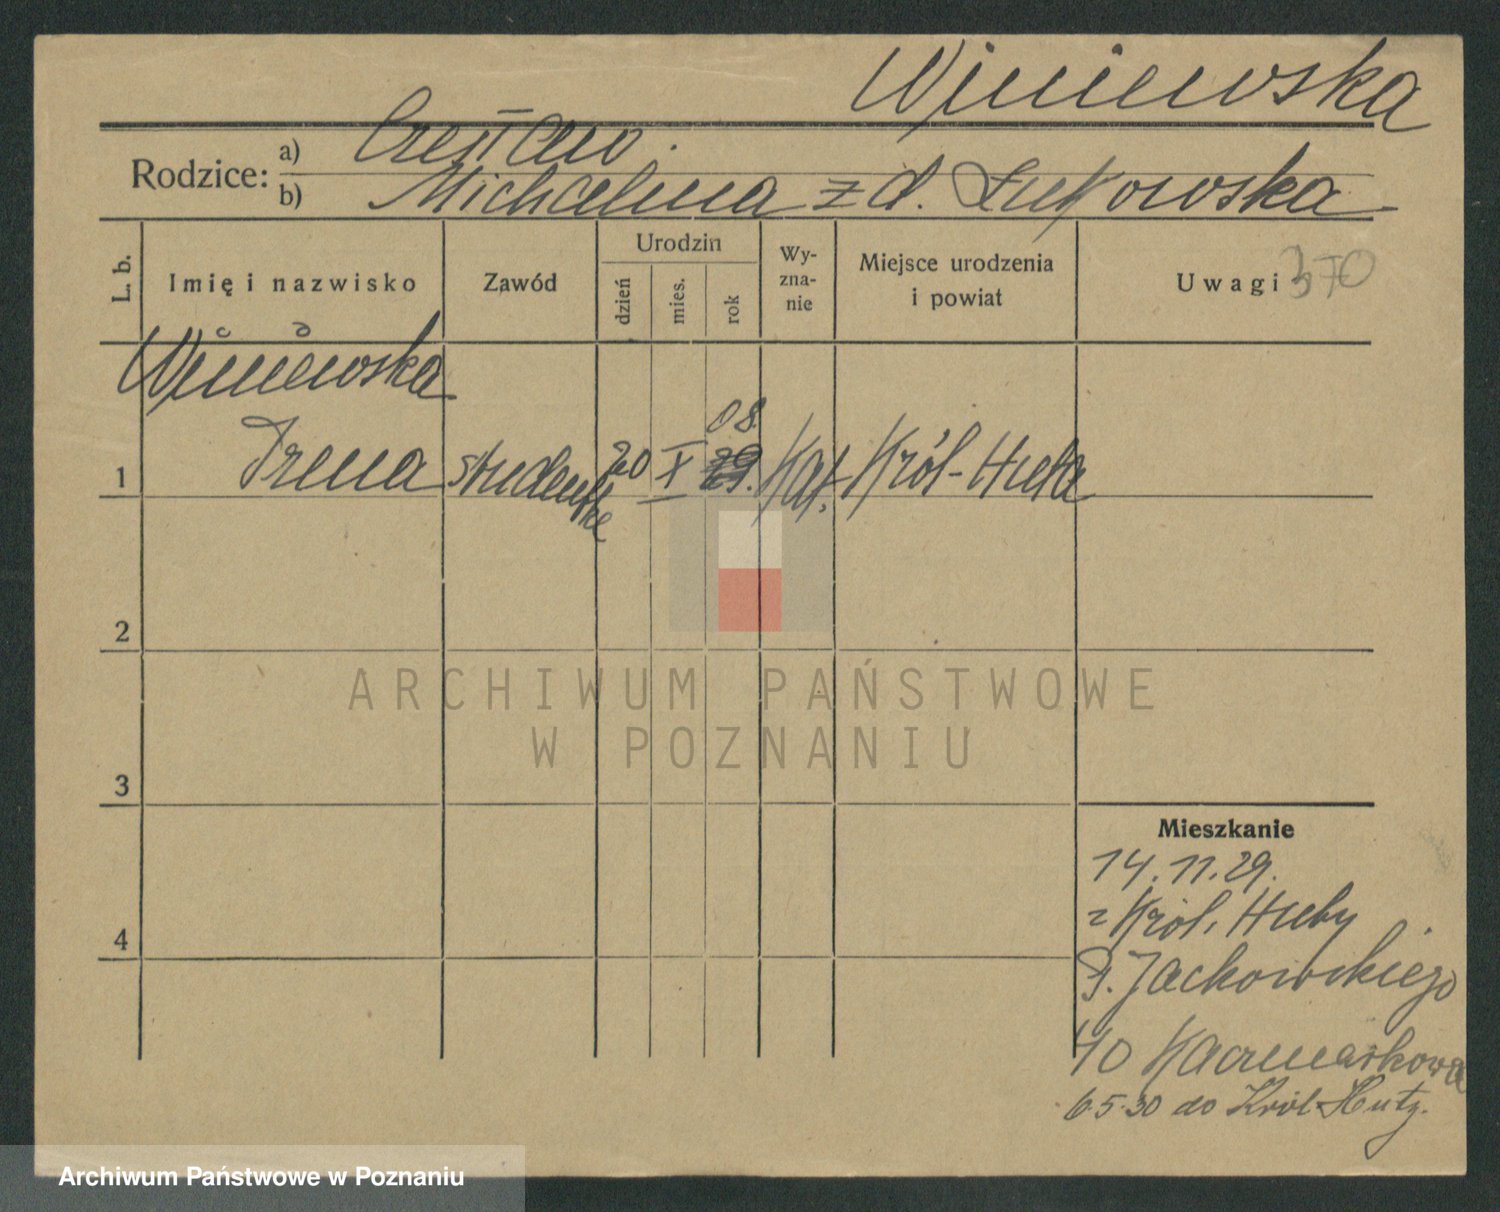 Winiewska
Rodzice: a) Czesław.
b) Michalina z d. Łukowska
L. b.
Imię i nazwisko
Zawód
Urodzin
dzień
mies.
rok
Wy-
zna-
nie
Miejsce urodzenia
i powiat
Uwagi
370
Winiewska
08.
1 Irena studentka 20 X 29. Kat. Król-Huta
2
ARCHIWUM PAŃSTWOWE
W POZNANIU
3
Mieszkanie
14.11.29.
z Król. Huty
P. Jackowskiego
4
40 Kaczmarkowa
6.5.30 do Król Huty.
Archiwum Państwowe w Poznaniu